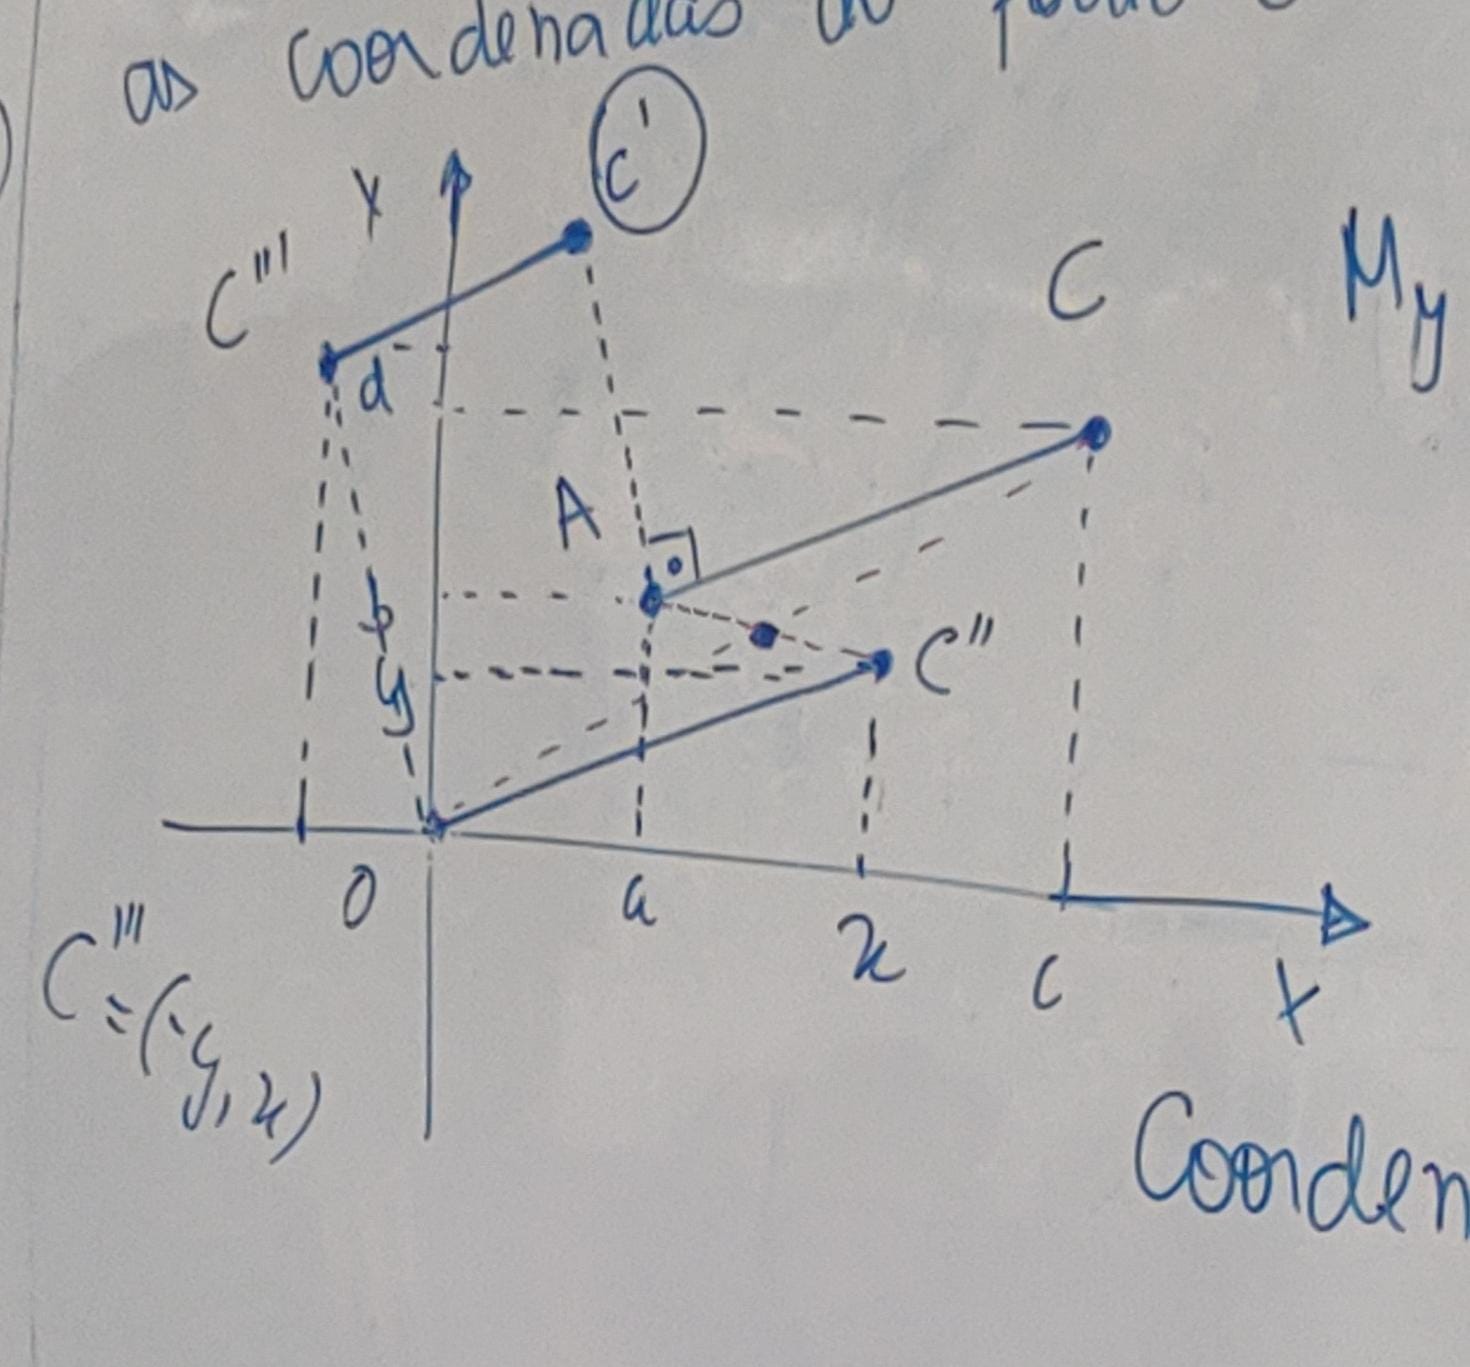 as coordenadas do
C'
Y
C'''
C
My
d
A
b
C''
y
O
a
x
c
X
C'''
=(-y, x)
Coorden